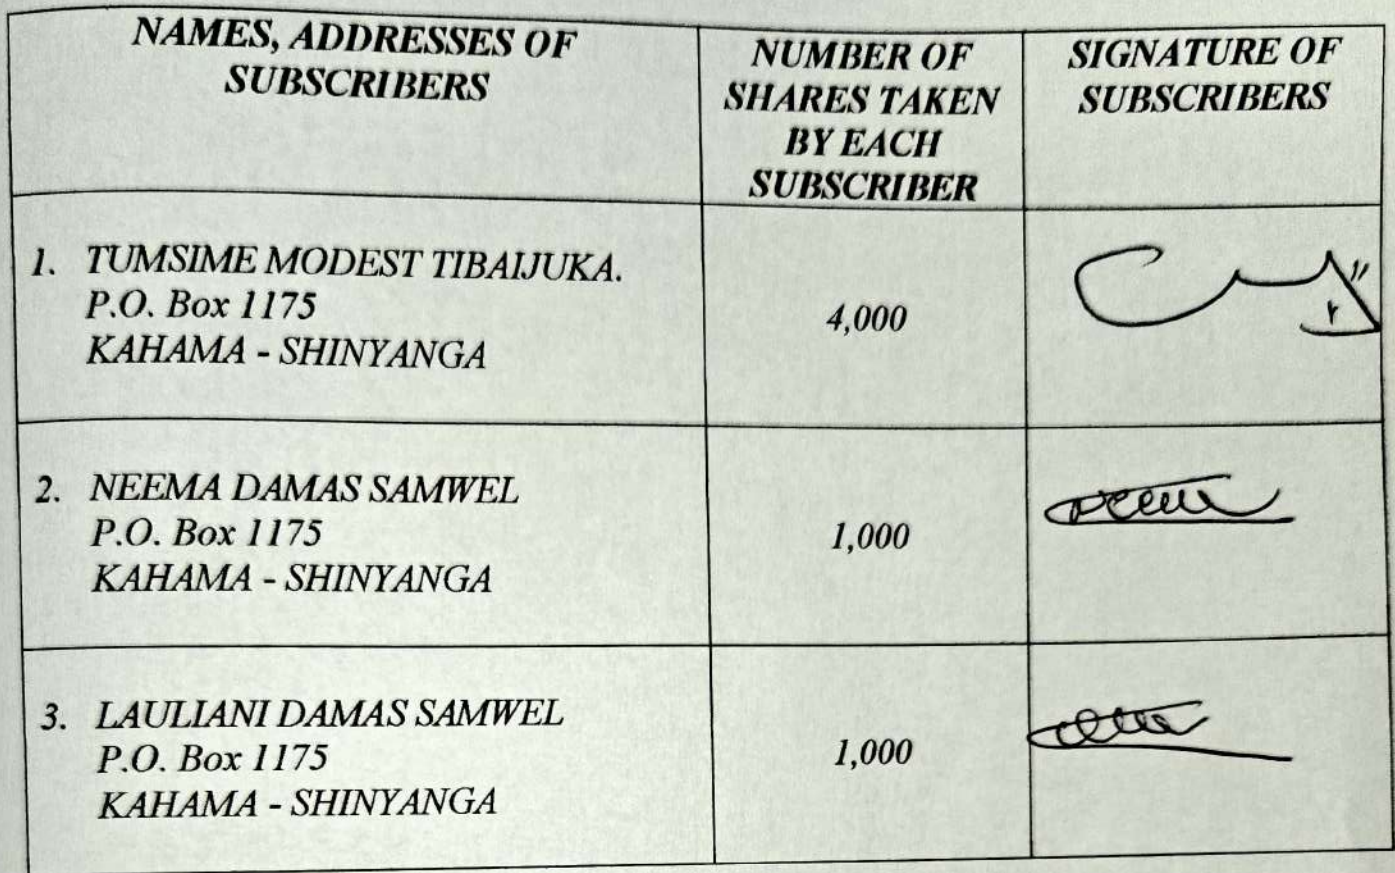 NAMES, ADDRESSES OF
SUBSCRIBERS
NUMBER OF
SHARES TAKEN
BY EACH
SUBSCRIBER
SIGNATURE OF
SUBSCRIBERS
1. TUMSIME MODEST TIBAIJUKA.
P.O. Box 1175
KAHAMA - SHINYANGA
4,000
2. NEEMA DAMAS SAMWEL
P.O. Box 1175
KAHAMA - SHINYANGA
1,000
3. LAULIANI DAMAS SAMWEL
P.O. Box 1175
KAHAMA - SHINYANGA
1,000